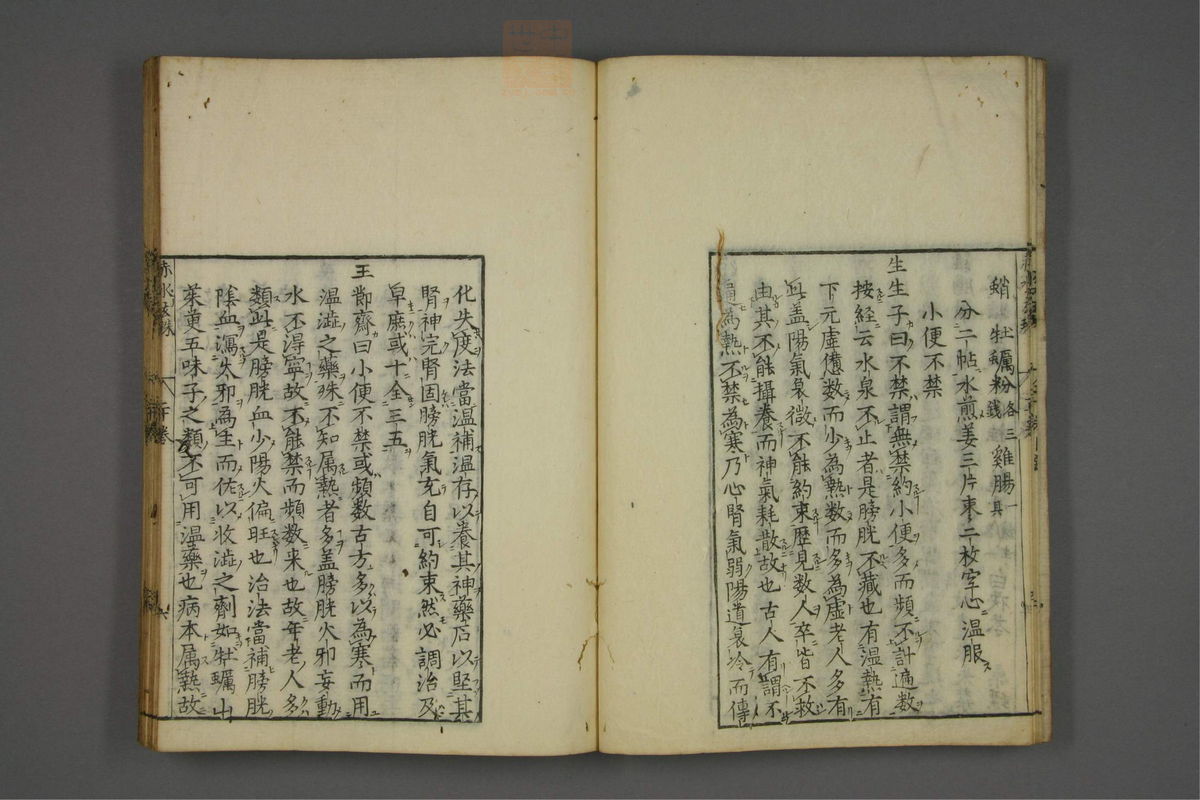 蛸 牡蠣粉 各三錢 雞腸一具
分二帖水煎姜三片棗二枚空心温服
小便不禁
生生子曰不禁謂無禁約小便多而頻不計遍数
按経云水泉不止者是膀胱不藏也有温熱有
下元虚憊数而少為熱数而多為虚老人多有
此盖陽氣衰微不能約束歴見数人卒皆不救
由其不能攝養而神氣耗散故也古人有謂不
為熱不禁為寒乃心腎氣弱陽道衰冷而傳
化失度法當温補温存以養其神藥石以堅其
腎神完腎固膀胱氣充自可約束然必調治及
早庶或十全三五
王節齋曰小便不禁或頻数古方多以為寒而用
温澁之藥殊不知属熱者多盖膀胱火邪妄動
水不得寧故不能禁而頻数来也故年老人多
類此是膀胱血少陽火偏旺也治法當補膀胱
陰血瀉火邪為主而佐以收澁之劑如牡蠣山
茱萸五味子之類不可用温藥也病本属熱故